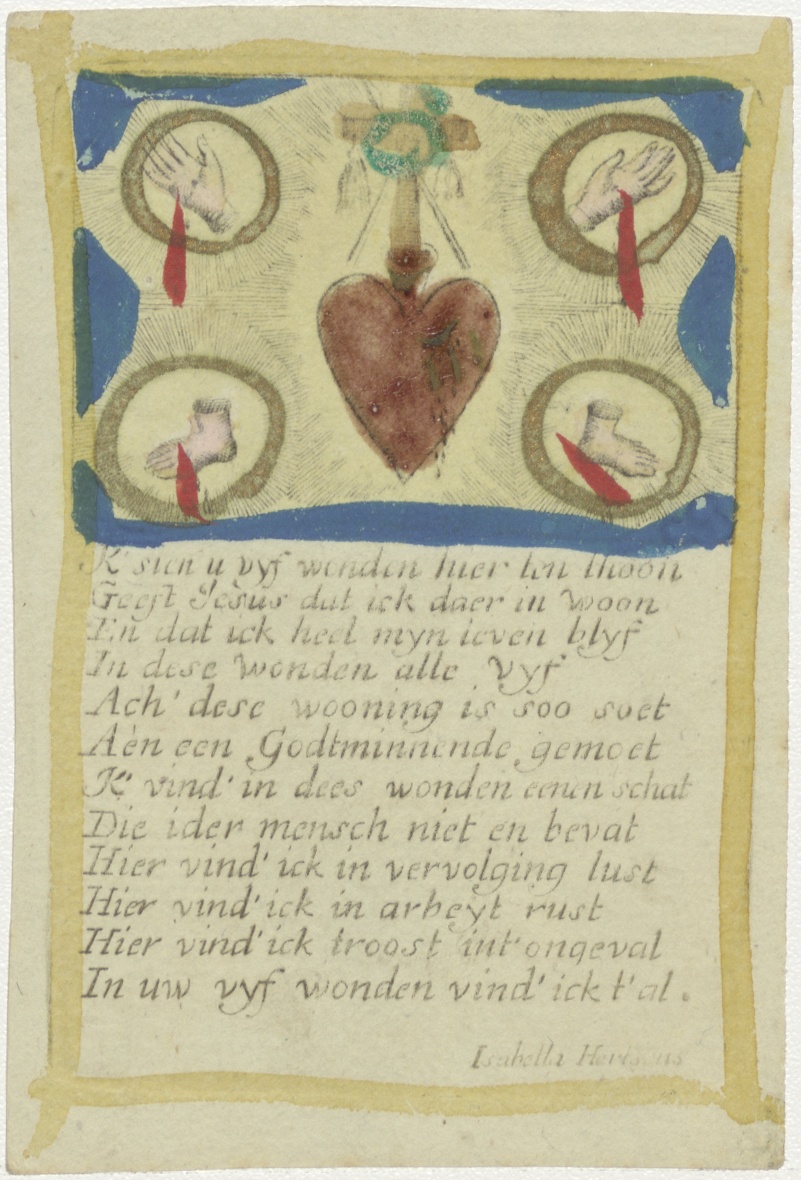 K' sien u vyf wonden hier ten thoon
Geeft Jesus dat ick daer in woon
En dat ick heel myn leven blyf
In dese wonden alle vyf
Ach' dese wooning is soo soet
Aen een Godtminnende gemoet
K' vind' in dees wonden eenen schat
Die ider mensch niet en bevat
Hier vind' ick in vervolging lust
Hier vind' ick in arbeyt rust
Hier vind' ick troost int' ongeval
In uw vyf wonden vind' ick t' al.
Isabella